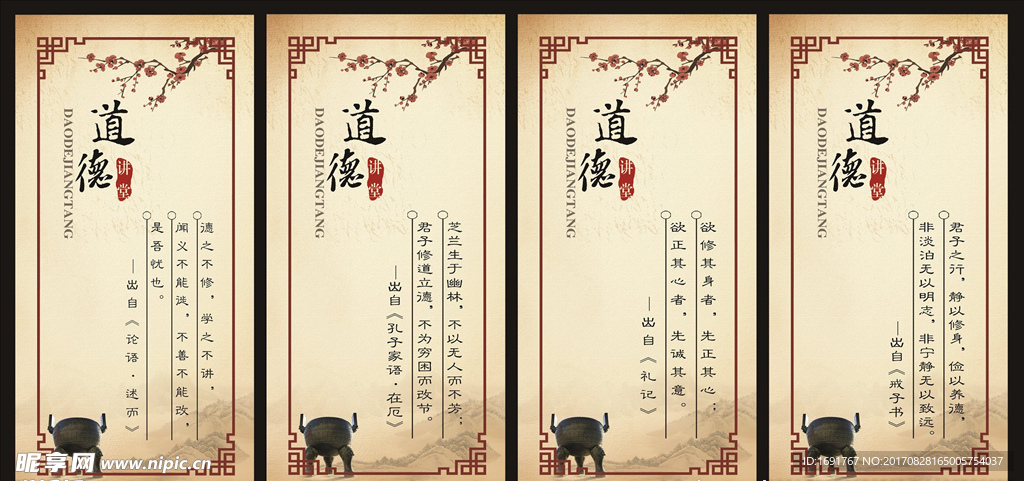 道德
讲堂
DAODEJIANGTANG
德之不修，学之不讲，
闻义不能徙，不善不能改，
是吾忧也。
—出自《论语·述而》
道德
讲堂
DAODEJIANGTANG
芝兰生于幽林，不以无人而不芳；
君子修道立德，不为穷困而改节。
—出自《孔子家语·在厄》
道德
讲堂
DAODEJIANGTANG
欲修其身者，先正其心；
欲正其心者，先诚其意。
—出自《礼记》
道德
讲堂
DAODEJIANGTANG
君子之行，静以修身，俭以养德，
非淡泊无以明志，非宁静无以致远。
—出自《戒子书》
昵享网 www.nipic.cn
ID:1691767 NO:20170828165005754037